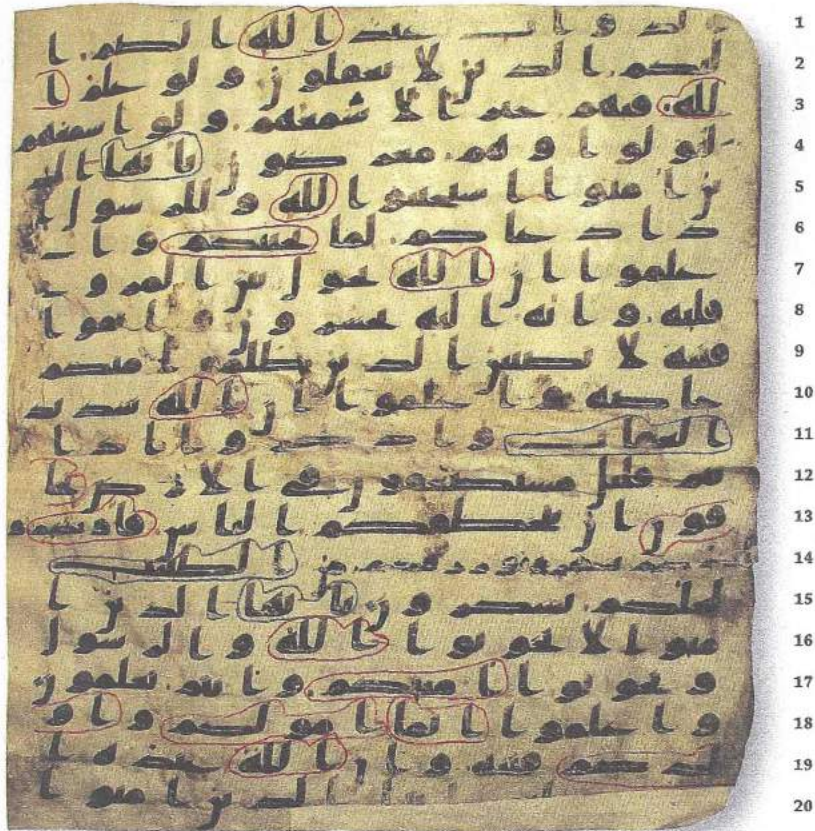 1 الدواب عند الله الصم ا
2 لبكم الذين لا يعقلون ولو علم ا
3 لله فيهم خيرا لاسمعهم ولو اسمعهم
4 لتولوا وهم معرضون يايها الذ
5 ين امنوا استجيبوا لله وللرسول ا
6 ذا دعاكم لما يحييكم وا
7 علموا ان الله يحول بين المر و
8 قلبه وانه اليه تحشرون واتقوا
9 فتنة لا تصيبن الذين ظلموا منكم
10 خاصة واعلموا ان الله شديد
11 العقاب واذكروا اذ ا
12 نتم قليل مستضعفون في الارض تخا
13 فون ان يتخطفكم الناس فاويكم و
14 ايدكم بنصره ورزقكم من الطيبت
15 لعلكم تشكرون يايها الذين ا
16 منوا لا تخونوا الله والرسول
17 وتخونوا امنتكم وانتم تعلمون
18 واعلموا انما امولكم واو
19 لدكم فتنة وان الله عنده ا
20 الذين امنوا